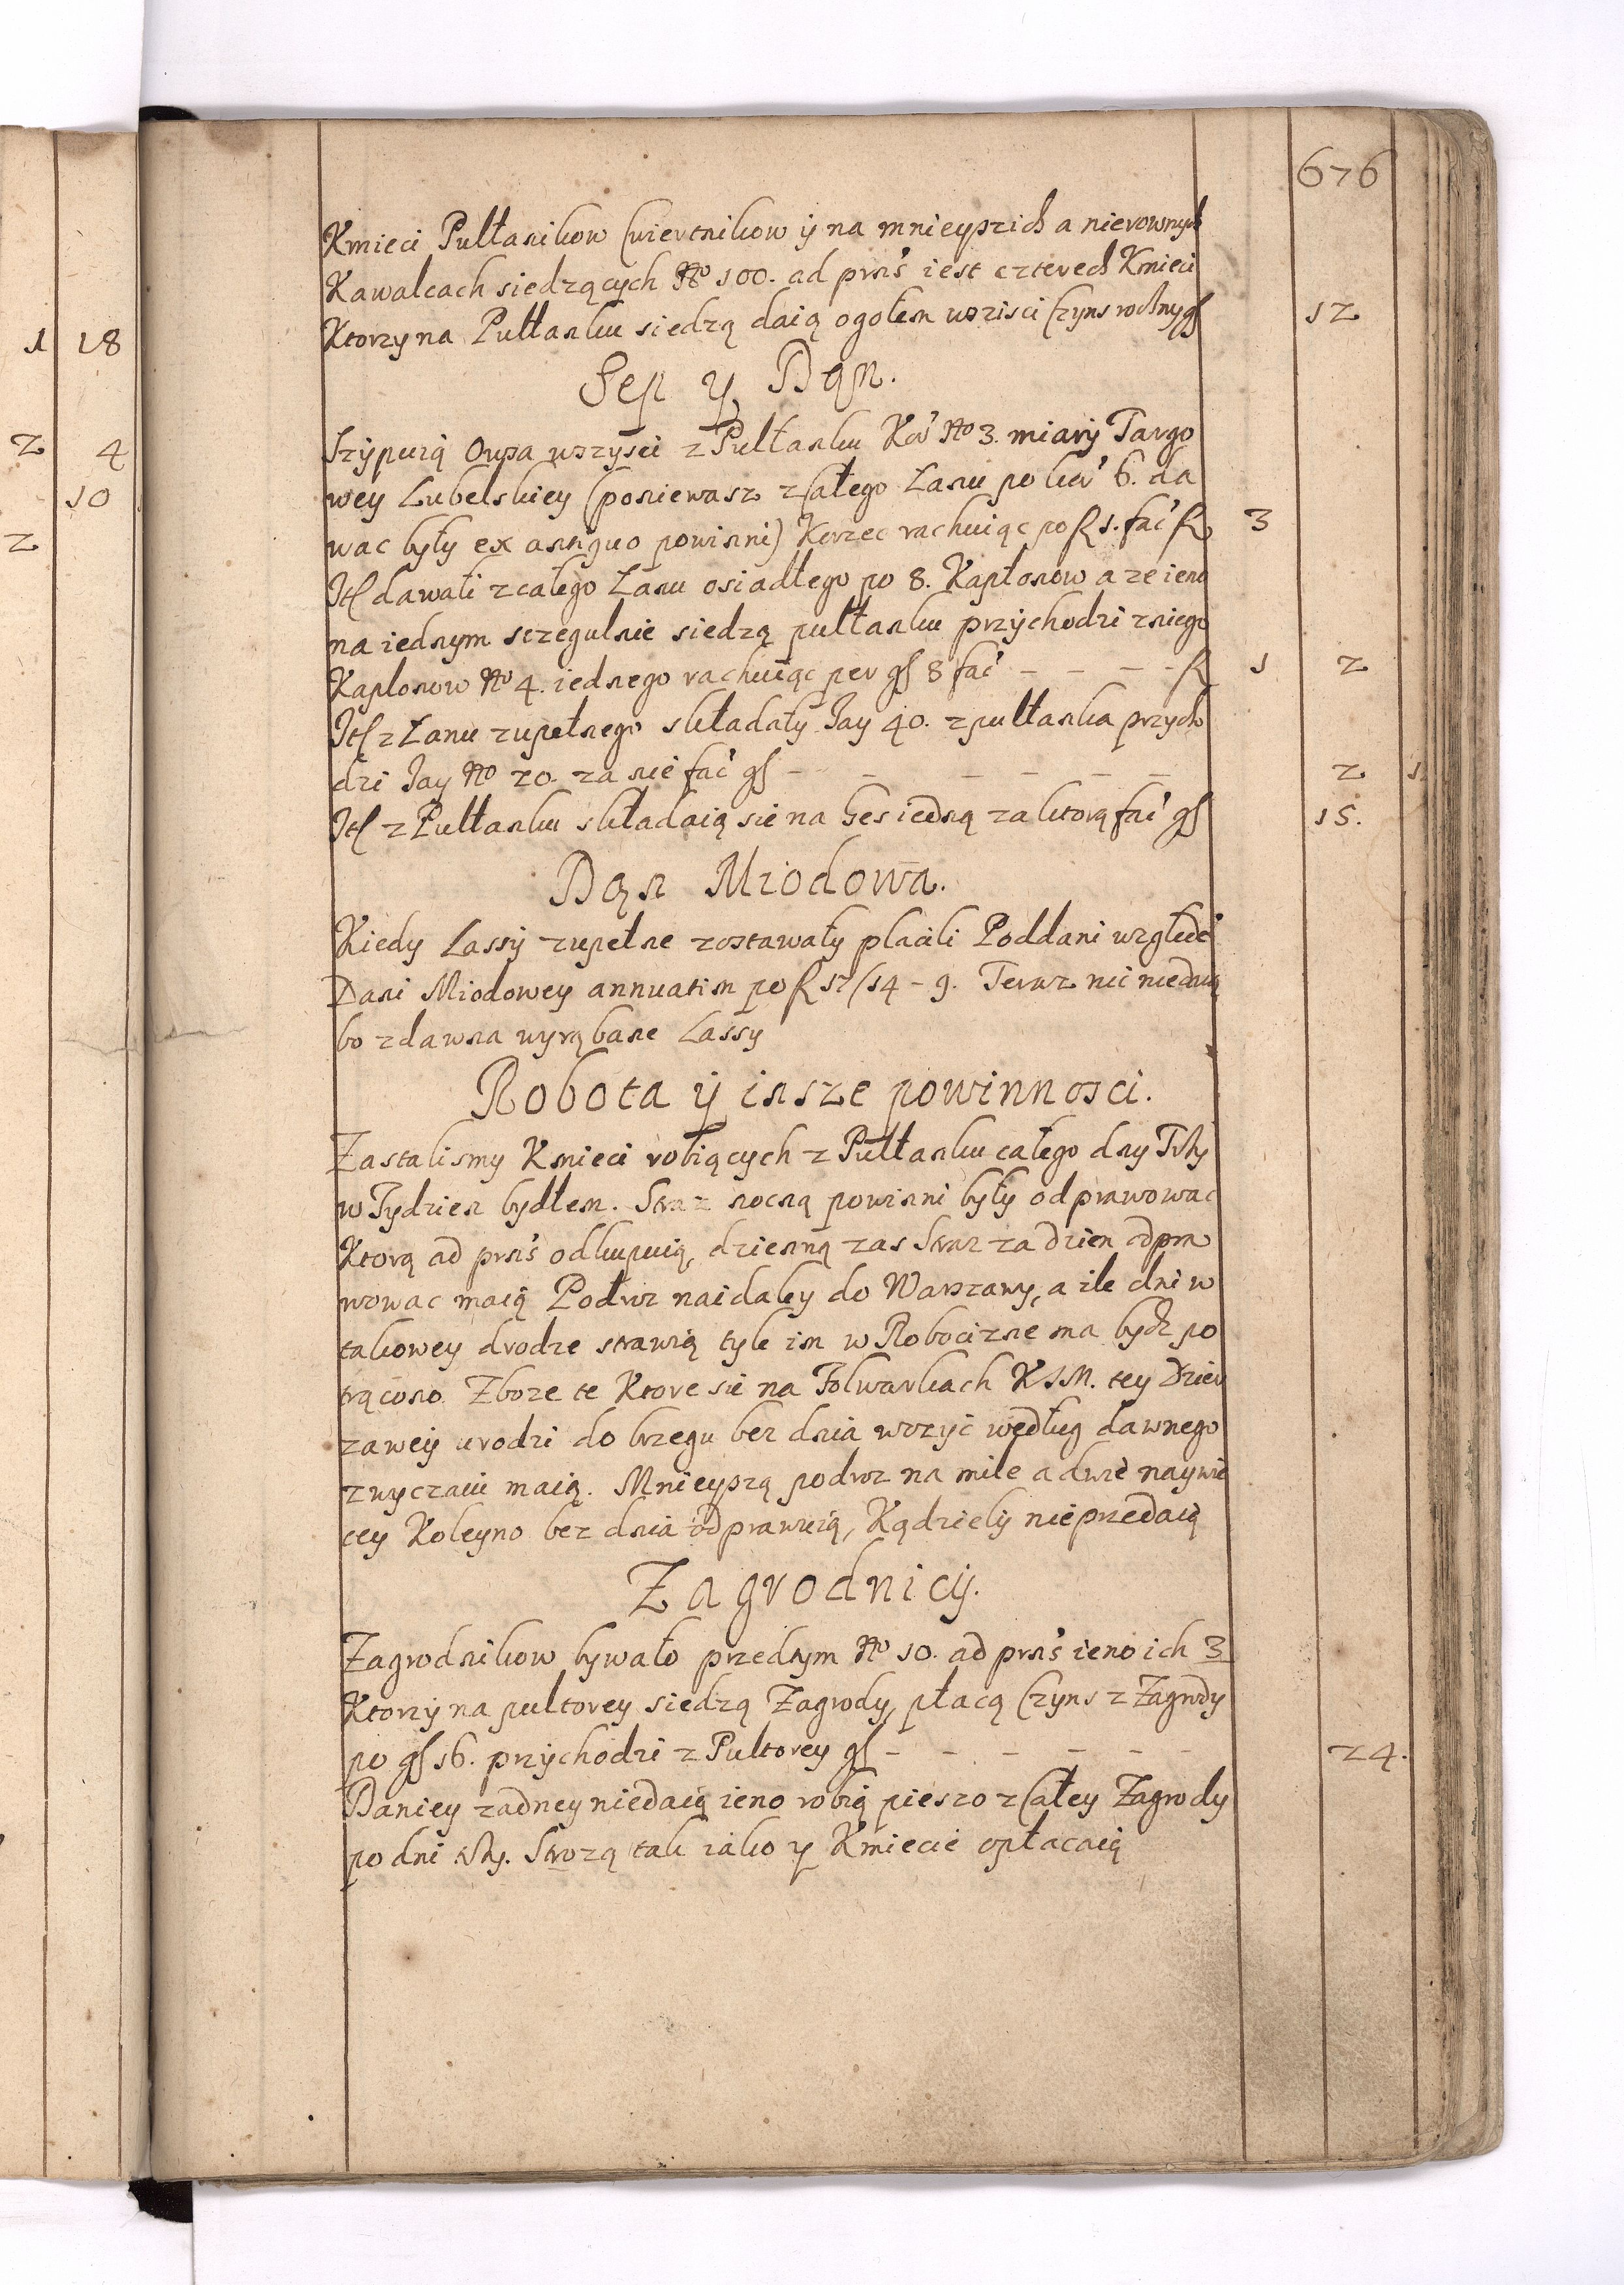 676
Kmieci Pułłanikow Cwiertnikow ÿ na mnieyszich a nierownych
Kawalcach siedzących No 100. ad prns iest czterech Kmieci
Ktorzy na Pułłanku siedzą daią ogołem wszisci Czyns roczny gſ 12
Sep y Dan.
Szÿpuią Owsa wszÿsci z Pułłanku Kor No 3. miarÿ Targo
wey Lubelskiey (poniewasz z Całego Łanu po kor 6. da
wac były ex antiquo powinni) Korzec rachuiąc po ſl 1. fac ſl 3
Itſ dawali z całego Łanu osiadłego po 8. Kapłonow a ze ieno
na iednym sczegulnie siedzą pułłanku przÿchodzi zniego
Kaplonow No 4. iednego rachuiąc per gſ 8 fac - - - - ſl 1 2
Itſ z Łanu zupełnego składały Jay 40. z pułłanka przycho
dzi Jay No 20. za nie fac gſ - - - - - - 2 1
Itſ z Pułłanku składaią sie na Gęs iedną za ktorą fac gſ 15.
Dan Miodowa.
Kiedy Lassÿ zupełne zostawały placili Poddani wzglede
Dani Miodowey annuatim po ſl 12/14 - 9. Teraz nic niedaią
bo zdawna wyrąbane Lassy
Robota ÿ insze powinnosci.
Zastalismy Kmieci robiących z Pułłanku całego dny Trzy
w Tydzien bydłem. Straz nocną powinni były odprawowac
Ktorą ad prns odkupuią, dzienną zas Straz za dzien odpra
wowac maią Podwoz naidaley do Warszawy, a ile dni w
takowey drodze strawią tyle im w Robocizne ma bydz po
trącono. Zboze te Ktore sie na Folwarkach KJM. tey Dzier
zaweÿ urodzi do brzegu bez dnia wozyc według dawnego
zwyczaiu maią. Mnieyszą podwoz na mile a dwie naywie
cey Koleyno bez dnia odprawuią, Kądzielÿ nieprzedaią
Zagrodnicÿ.
Zagrodnikow bywało przedtym No 10. ad prns ieno ich 3
Ktorzÿ na pultorey siedzą Zagrody, płacą Czyns z Zagrody
po gſ 16. przÿchodzi z Pultorey gſ - - - - - - 24.
Daniey zadney niedaią ieno robią pieszo z Całey Zagrody
po dni trzy. Strozą tak iako y Kmiecie opłacaią
1 18
2 4
10
2